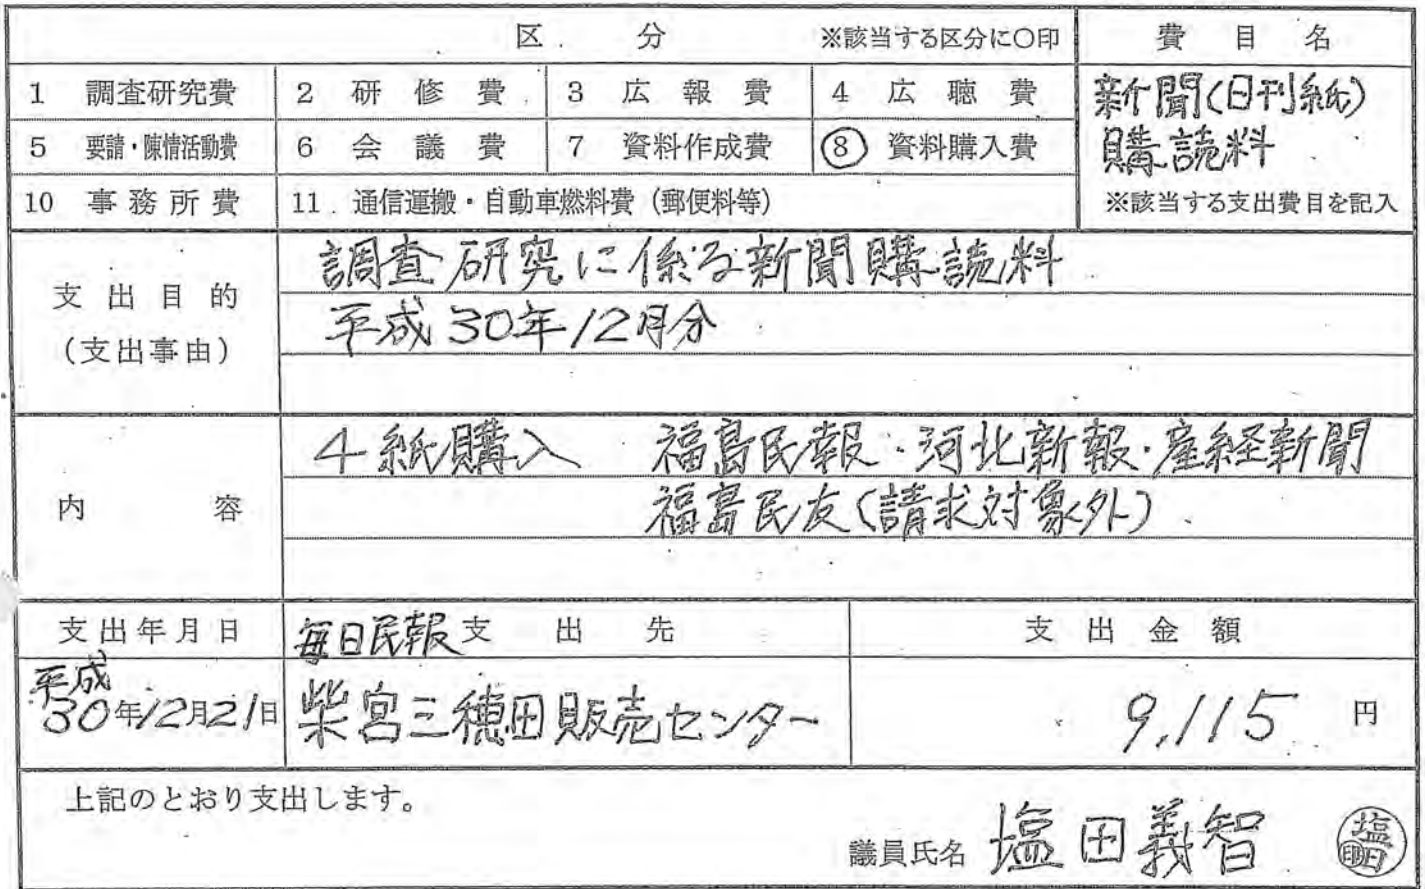 区 分 ※該当する区分に○印 費目名
1 調査研究費 2 研修費 3 広報費 4 広聴費 新聞(日刊紙)
5 要請・陳情活動費 6 会議費 7 資料作成費 ⑧ 資料購入費 購読料
10 事務所費 11 通信運搬・自動車燃料費(郵便料等) ※該当する支出費目を記入
調査研究に係る新聞購読料
支出目的
平成30年12月分
(支出事由)
4紙購入 福島民報・河北新報・産経新聞
内容 福島民友(請求対象外)
支出年月日 毎日民報 支出先 支出金額
平成
30年12月21日 柴宮三穂田販売センター 9,115 円
上記のとおり支出します。
議員氏名 塩田義智 塩田印